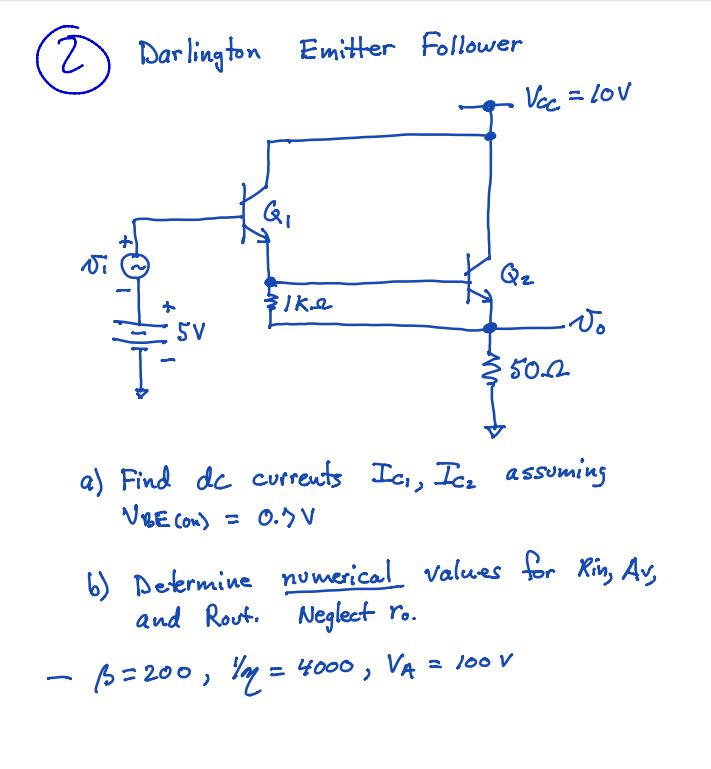 2 Darlington Emitter Follower
Vcc = 10V
Q1
+
vi
-
+
5V
-
Q2
1KΩ
vo
50Ω
a) Find dc currents Ic1, Ic2 assuming
VBE(on) = 0.7V
b) Determine numerical values for Rin, Av,
and Rout. Neglect ro.
- β = 200, 1/η = 4000, VA = 100V